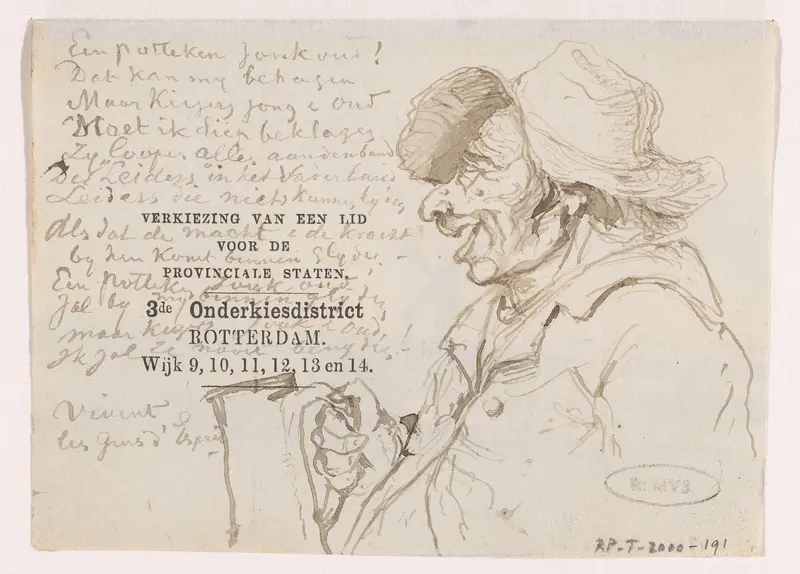 Een potteken jonk oud!
Dat kan my behagen
Maar Kiezers jong e oud
Moet ik diep beklagen
Zy loopen alles aan den band
Der "Leiders" in het Vaderland
Leiders die niets kunnen
VERKIEZING VAN EEN LID
Als dat de macht e de kracht
VOOR DE
by hen komt binnen
PROVINCIALE STATEN.
Een potteken jonk oud
3de Onderkiesdistrict
Zal by my binnen
ROTTERDAM.
maar Kiezers jonk e oud,
Wijk 9, 10, 11, 12, 13 en 14.
Ik zal Ze nooit !
Vivent
les Gens d'Esprit
R: MVS
RP-T-2000-191